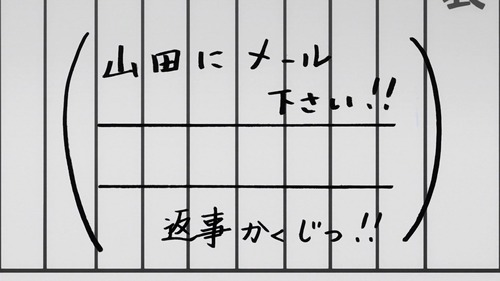 山田に メール
下さい!!
返事かくじつ!!